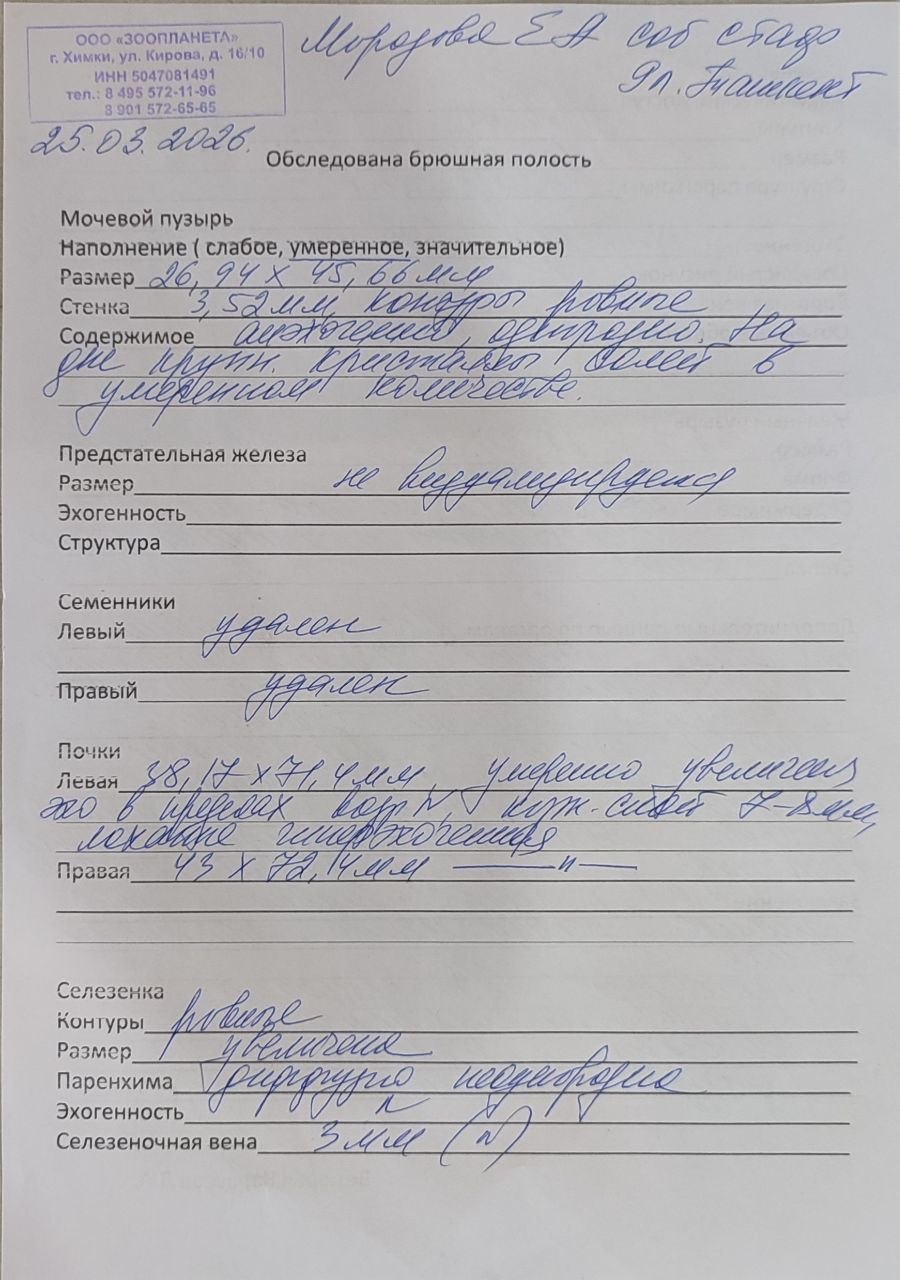 ООО «ЗООПЛАНЕТА»
г. Химки, ул. Кирова, д. 16/10
ИНН 5047081491
тел.: 8 495 572-11-96
8 901 572-65-65
Морозова ЕА соб стаф
9л. Ташкент
25.03.2026.
Обследована брюшная полость
Мочевой пузырь
Наполнение ( слабое, умеренное, значительное)
Размер 26,94 х 45,66 мм
Стенка 3,52 мм, контуры ровные
Содержимое анэхогенно, однородно. На
дне крупн. кристаллы солей в
умеренном количестве.
Предстательная железа
Размер не визуализируется
Эхогенность
Структура
Семенники
Левый удален
Правый удален
Почки
Левая 38,17 х 71,4 мм, умеренно увеличена
эхо в пределах возр N, корк. слой 7-8 мм,
лоханка гиперэхогенная
Правая 43 х 72,14 мм —— " ——
Селезенка
Контуры ровные
Размер увеличена
Паренхима диффузно неоднородна
Эхогенность N
Селезеночная вена 3 мм (N)